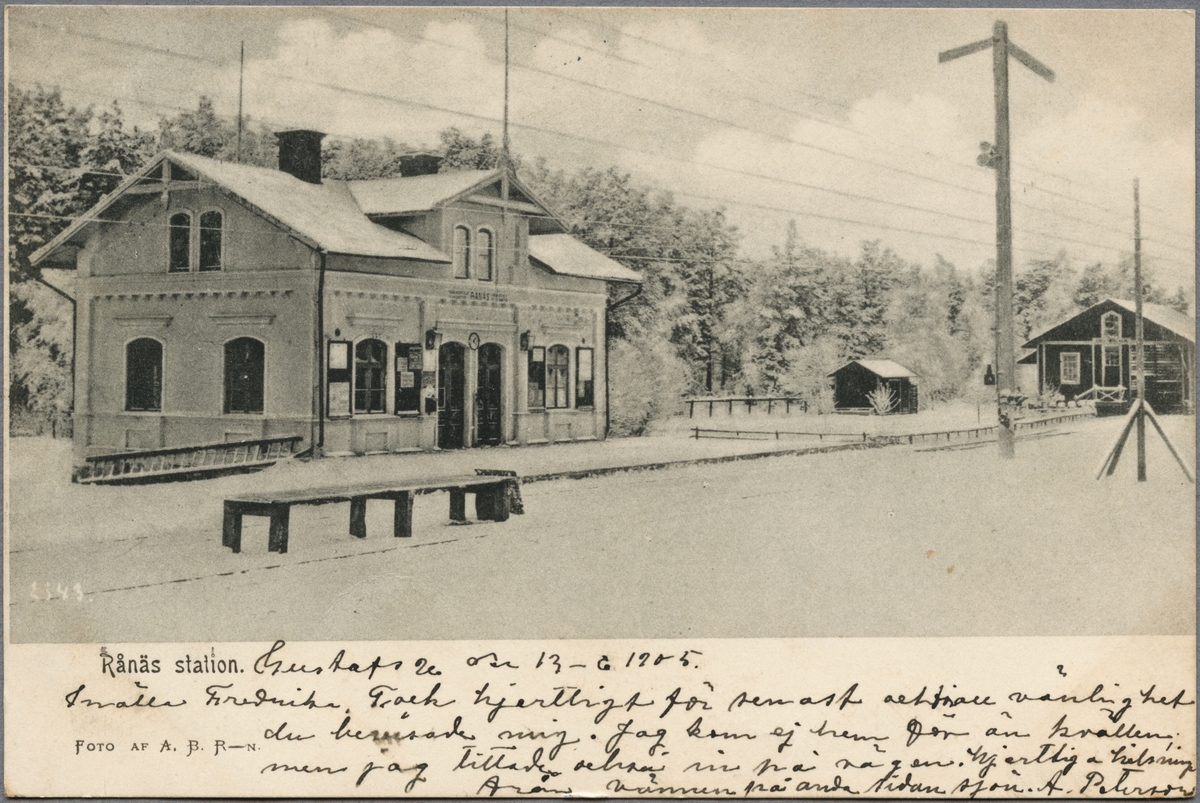 RÅNÄS
2343.
Rånäs station. Gustafs den 13-6 1905.
Snälla Fredrika. Tack hjertligt för senast och all vänlighet
du bevisade mig. Jag kom ej hem för än kvällen,
FOTO AF A. B. R—N.
men jag tittade också in på vägen. Hjertliga helsning
från vännen på anda sidan sjön. A. Peterson